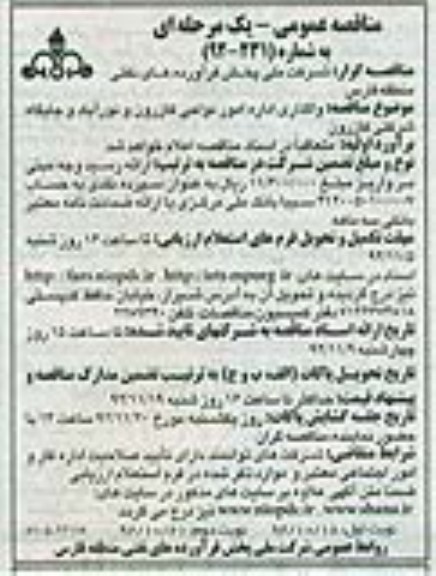 مناقصه عمومی – یک مرحله ای
به شماره (۲۳۱-۹۲)
مناقصه گزار: شرکت ملی پخش فرآورده های نفتی
منطقه فارس
موضوع مناقصه: واگذاری اداره امور نواحی کازرون و نورآباد و جایگاه
شرکتی کازرون
برآورد اولیه: متعاقباً در اسناد مناقصه اعلام خواهد شد
نوع و مبلغ تضمین شرکت در مناقصه به ترتیب: ارائه رسید وجه مبنی
بر واریز مبلغ ریال به عنوان سپرده نقدی به حساب
سیبا بانک ملی مرکزی یا ارائه ضمانت نامه معتبر
بانکی سه ماهه
مهلت تکمیل و تحویل فرم های استعلام ارزیابی: تا ساعت ۱۶ روز شنبه
۹۲/۱۱/۵
اسناد در سایت های
نیز درج گردیده و تحویل آن به آدرس شیراز، خیابان حافظ
دفتر کمیسیون مناقصات تلفن
تاریخ ارائه اسناد مناقصه به شرکتهای تایید شده: تا ساعت ۱۵ روز
چهارشنبه ۹۲/۱۱/۹
تاریخ تحویل پاکات (الف، ب و ج) به ترتیب تضمین مدارک مناقصه و
پیشنهاد قیمت: حداکثر تا ساعت ۱۶ روز شنبه ۹۲/۱۱/۱۹
تاریخ جلسه گشایش پاکات: روز یکشنبه مورخ ۹۲/۱۱/۲۰ ساعت ۱۲ با
حضور نماینده مناقصه گران
شرایط متقاضی: شرکت های توانمند دارای تأیید صلاحیت اداره کار و
امور اجتماعی معتبر و موارد ذکر شده در فرم استعلام ارزیابی
ضمنا متن آگهی علاوه بر سایت های مذکور در سایت های
www.shana.ir و www.niopdc.ir نیز درج می گردد
نوبت اول: نوبت دوم:
روابط عمومی شرکت ملی پخش فرآورده های نفتی منطقه فارس